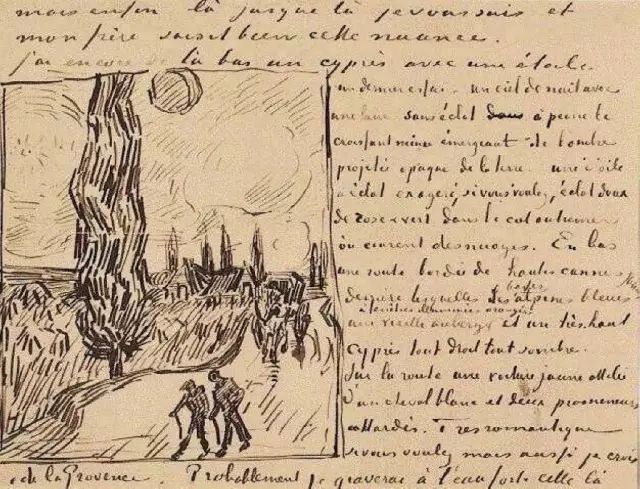 mais enfin là jusque là je vous sais et
mon frère saisit bien cette nuance.
j'ai encore de là bas un cyprès avec une étoile
un dernier essai - un ciel de nuit avec
une lune sans éclat à peine le
croissant mince émergeant de l'ombre
projetée opaque de la terre - une étoile
à éclat exagéré, si vous voulez, éclat doux
de rose et vert dans le ciel outremer
où courent des nuages. En bas
une route bordée de hautes cannes
derrière lesquelles les basses alpines bleues
à fenêtres illuminées orangée
une vieille auberge et un très haut
cyprès tout droit tout sombre.
Sur la route une voiture jaune attelée
d'un cheval blanc et deux promeneurs
attardés. Très romantique
si vous voulez mais aussi je crois
de la Provence. Probablement je graverai à l'eau forte celle là